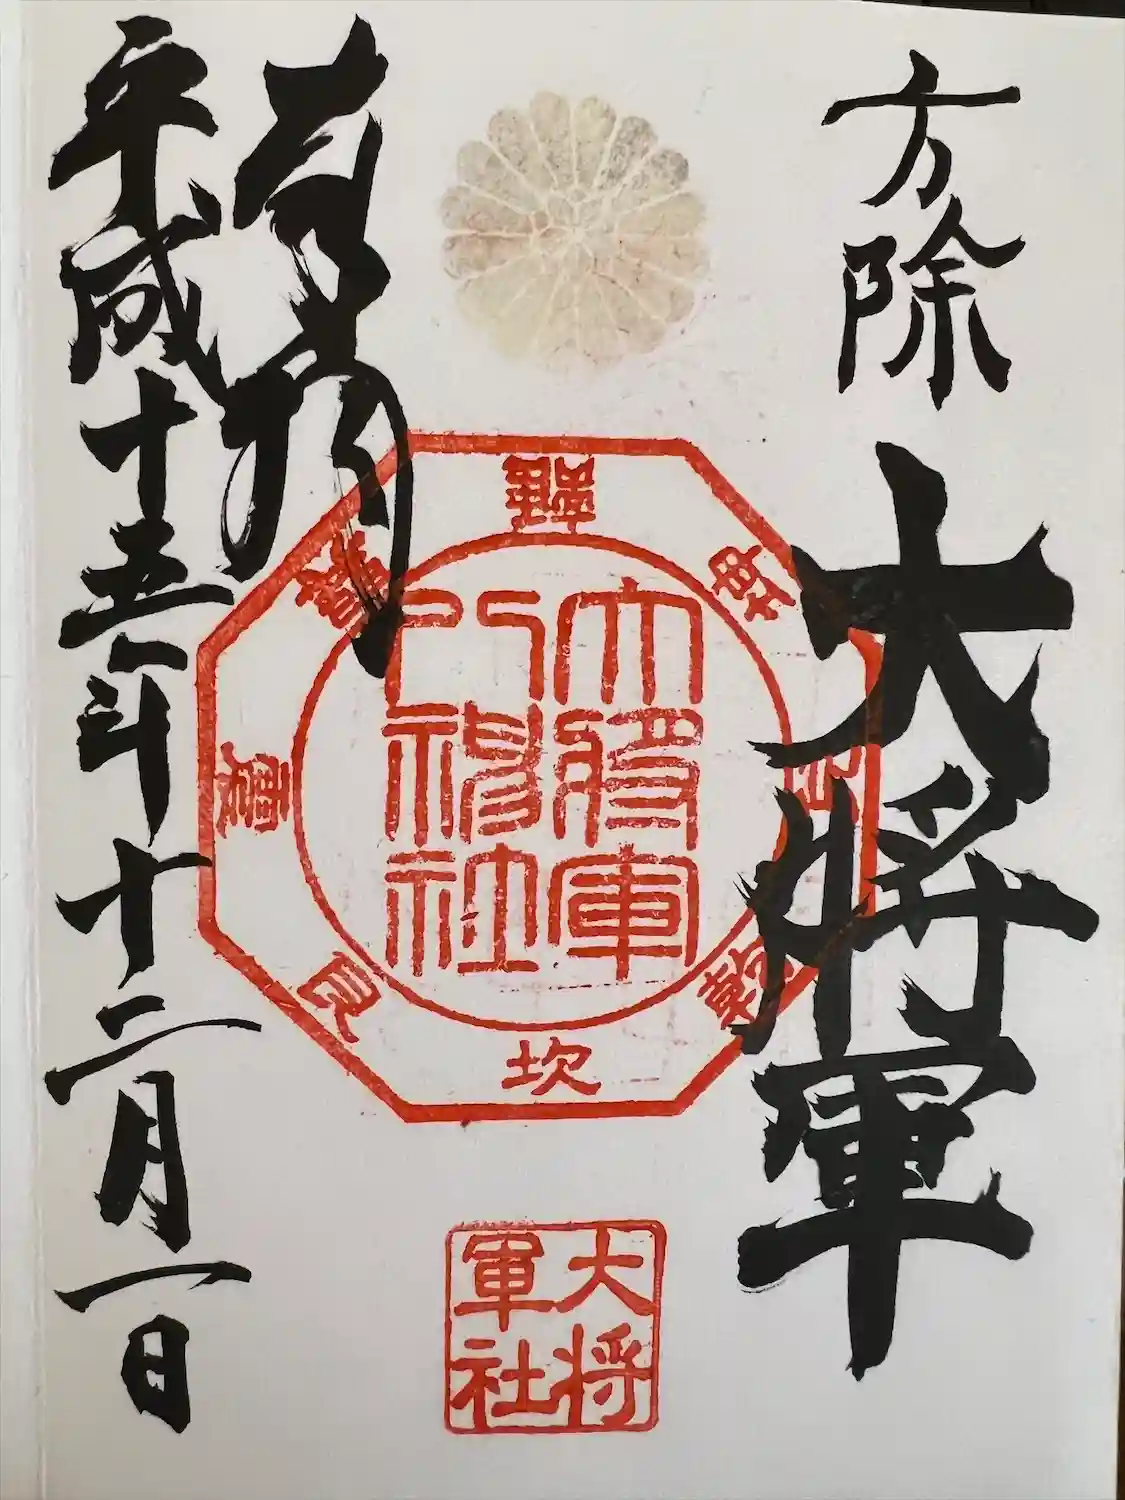 方除
大将軍
奉拝
平成十五年十二月一日
大将軍
八神社
離
坤
乾
坎
艮
震
大将
軍社